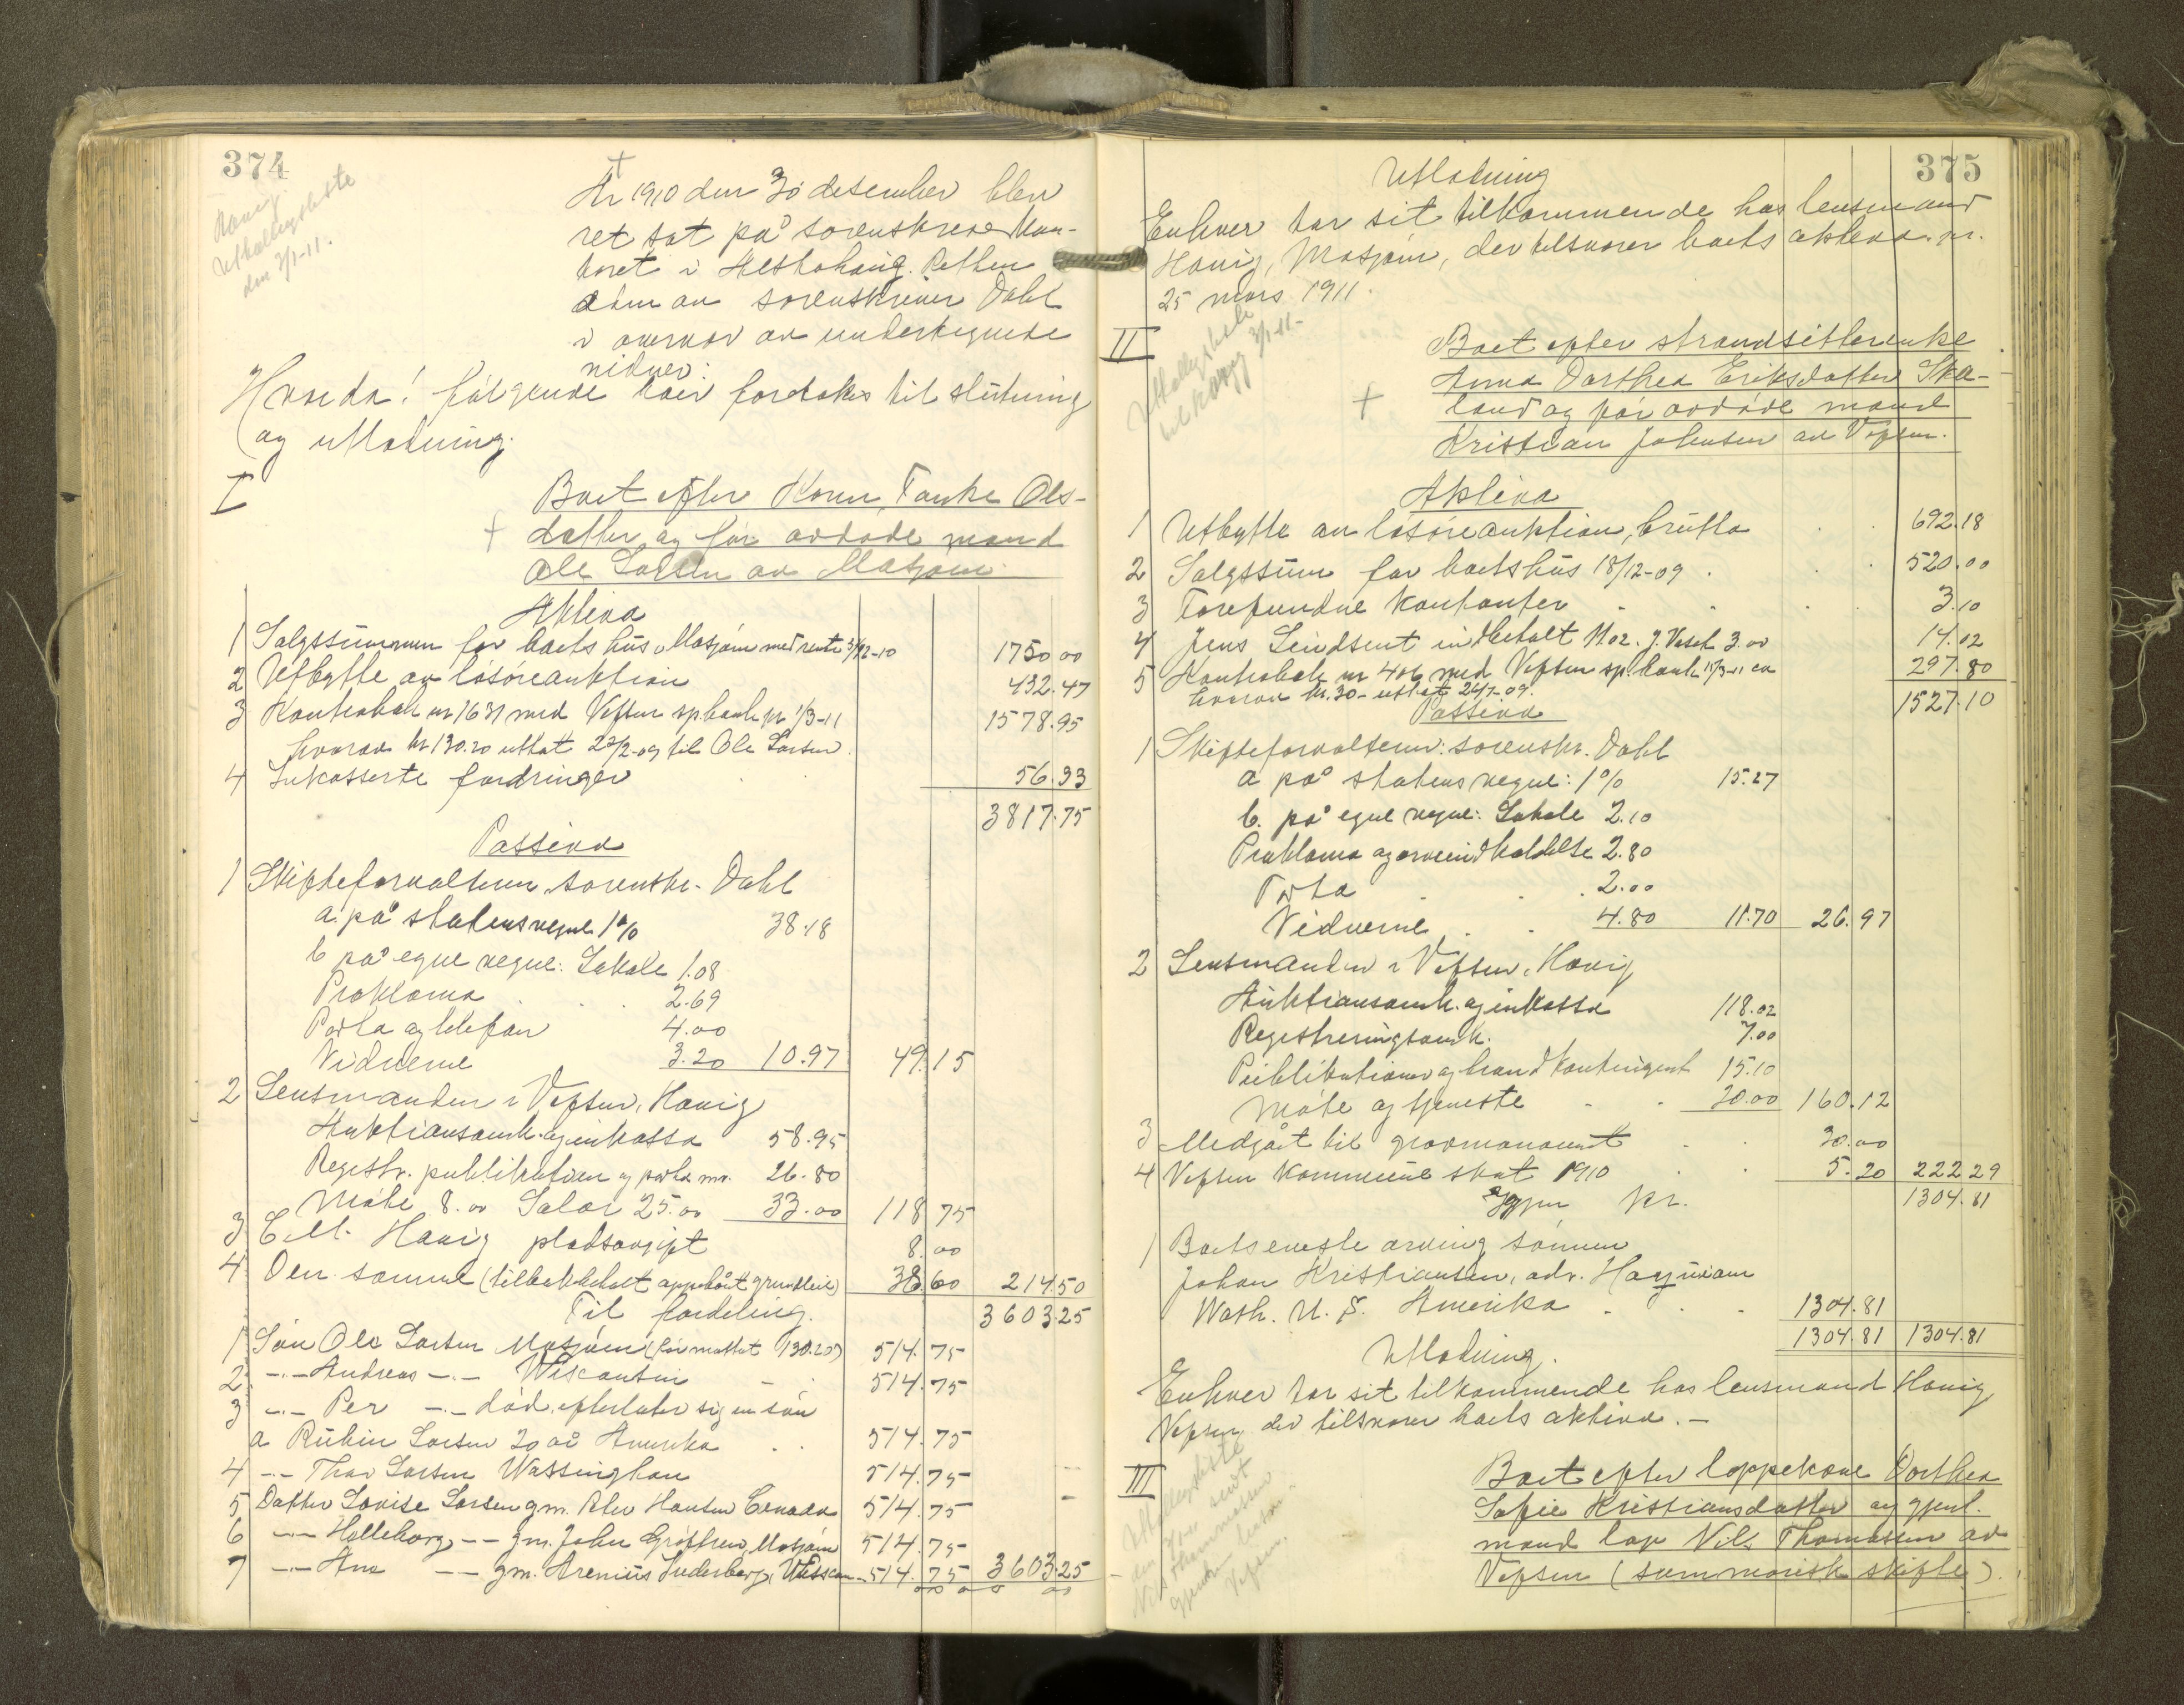 374
Havig
Utkallingsliste
den 3/1-11.
År 1910 den 30 desember blev
ret sat på sorenskriverkon-
toret i Alstahaug. Retten
adm av sorenskriver Dahl
i overvær av undertegnede
vidner:
Hvorda! følgende boer foretokes til slutning
og utlodning.
I
Boet efter Karen Tanke Ols-
datter og før avdøde mand
Ole Larsen av Mosjøen.
Aktiva
1 Salgssummen for boets hus i Mosjøen med rente 31/12-10 1750 00
2 Utbytte av løsøreauktion 432.47
3 Kontrabok nr 1631 med Vefsen spbank pr 1/3-11 1578.95
hvorav kr 130.20 uttat 22/2-09 til Ole Larsen.
4 Inkasserte fordringer 56.33
3817.75
Passiva
1 Skifteforvalteren, sorenskr. Dahl
a. på statens vegne 1% 38.18
b på egne vegne: Lokale 1.08
Proklama 2.69
Porto og telefon 4.00
Vidnerne 3.20 10.97 49.15
2 Lensmanden i Vefsen, Havig
Auktionsomk. og inkasso 58.95
Registr. publikation og porto mv. 26.80
Møte 8.00 Salær 25.00 33.00 118 75
3 C. M. Havig pladsavgift 8.00
4 Den samme (tilbakebetalt oppebåret grundleie) 38.60 214.50
Til fordeling. 3603.25
1 Søn Ole Larsen Mosjøen (før mottat 130.20) 514.75
2 -"- Andreas -"- Wisconsin 514.75
3 -"- Per -"- død, efterlater sig en søn
a Rubin Larsen 20 år Amerika 514.75
4 -"- Thor Larsen Wassinghton 514.75
5 Datter Lovise Larsen gm. Peter Hansen Canada 514.75
6 -"- Halleborg -"- gm. John Grøftrem, Mosjøen 514.75
7 -"- Ane -"- gm. Arenius Sederberg, Wisscon- 514.75 3603.25
375
Utlodning
Enhver tar sit tilkommende hos lensmand
Havig, Mosjøen, der tilsvarer boets aktiva. pr.
25 mars 1911.
Utkallingsliste
til Havig 3/1-11-
II
Boet efter strandsitterenke
Anna Dorthea Eriksdatter Ska-
land og før avdøde mand
Kristian Johnsen av Vefsen.
Aktiva
1 Utbytte av løsøreauktion, brutto 692.18
2 Salgssum for boets hus 18/12-09 520.00
3 Forefundne kontanter 3.10
4 Jens Lindseut indbetalt 11.02. J. Vesch 3.00 14.02
5 Kontrabok nr 406 med Vefsen sp.bank 15/3-11 ca 297.80
hvorav kr. 30- uttat 26/7-09. 1527.10
Passiva
1 Skifteforvalteren: sorenskr. Dahl
a på statens vegne: 1% 15.27
b. på egne vegne: Lokale 2.10
Proklama og arveindkaldelse 2.80
Porto 2.00
Vidnerne 4.80 11.70 26.97
2 Lensmanden i Vefsen, Havig
Auktionsomk. og inkasso 118.02
Registreringsomk. 7.00
Publikationer og brandkontingent 15.10
Møte og tjeneste 20.00 160.12
3 Medgåt til gravmonument 30.00
4 Vefsen kommune skat 1910 5.20 222 29
Igjen kr. 1304.81
1 Boets eneste arving sønnen
Johan Kristiansen, adr. Hoquiam
Wash. U. S. Amerika 1304.81
1304.81 1304.81
Utlodning.
Enhver tar sit tilkommende hos lensmand Havig
Vefsen, der tilsvarer boets aktiva. -
III
Boet efter loppekone Dorthea
Sofie Kristiansdatter og gjenl.
mand lap Nils Thomassen av
Vefsen (summarisk skifte).
Utkallingsliste
sendt
Nils Thomassen
Vefsen.